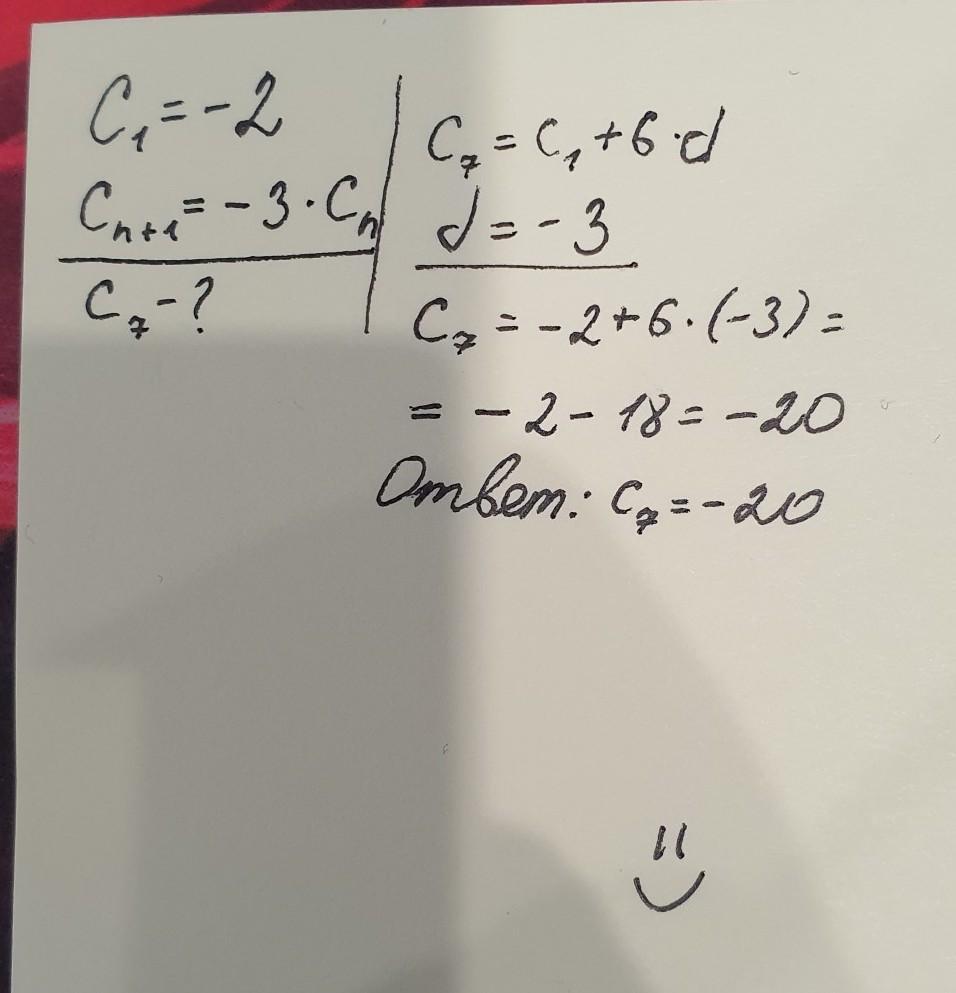 C₁ = -2
Cₙ₊₁ = -3 · Cₙ
C₇ - ?
C₇ = C₁ + 6 · d
d = -3
C₇ = -2 + 6 · (-3) =
= -2 - 18 = -20
Ответ: C₇ = -20